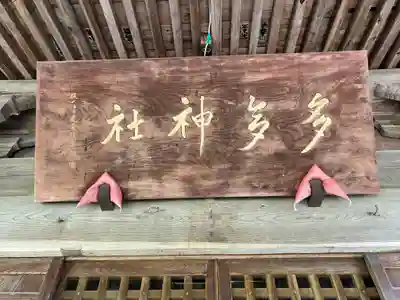 多多神社